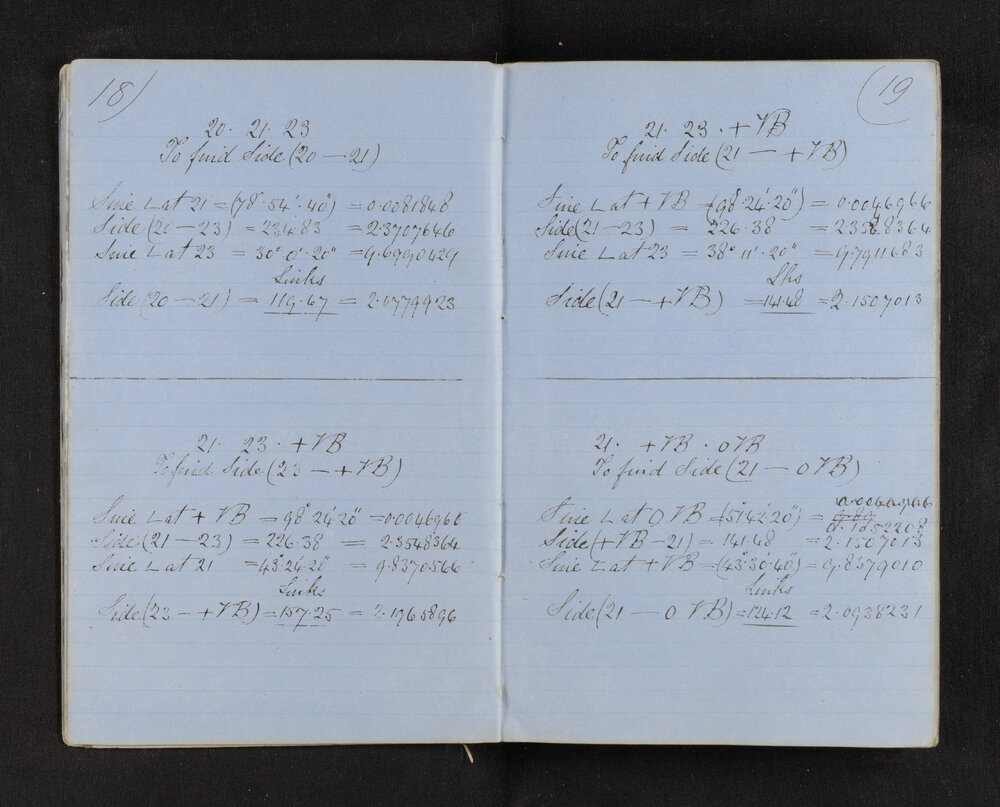 18)
20. 21. 23
To find Side (20 — 21)
Sine L at 21 = (78° 54' 40") = 0.0081848
Side (20 — 23) = 234.83 = 2.3707646
Sine L at 23 = 30° 0' 20" = 9.6990429
Links
Side (20 — 21) = 119.67 = 2.0779923
21. 23. + VB
To find Side (23 — + VB)
Sine L at + VB = 98° 24' 20" = 0.0046966
Side (21 — 23) = 226.38 = 2.3548364
Sine L at 21 = 43° 24' 20" = 9.8370566
Links
Side (23 — + VB) = 157.25 = 2.1965896
(19
21. 23. + VB
To find Side (21 — + VB)
Sine L at + VB = (98° 24' 20") = 0.0046966
Side (21 — 23) = 226.38 = 2.3548364
Sine L at 23 = 38° 11' 20" = 9.7911683
Lks
Side (21 — + VB) = 141.48 = 2.1507013
21. + VB. 0 VB
To find Side (21 — 0 VB)
Sine L at 0 VB = (51° 42' 20") = 0.1052208
Side (+ VB — 21) = 141.48 = 2.1507013
Sine L at + VB = (43° 30' 40") = 9.8379010
Links
Side (21 — 0 VB) = 124.12 = 2.0938231